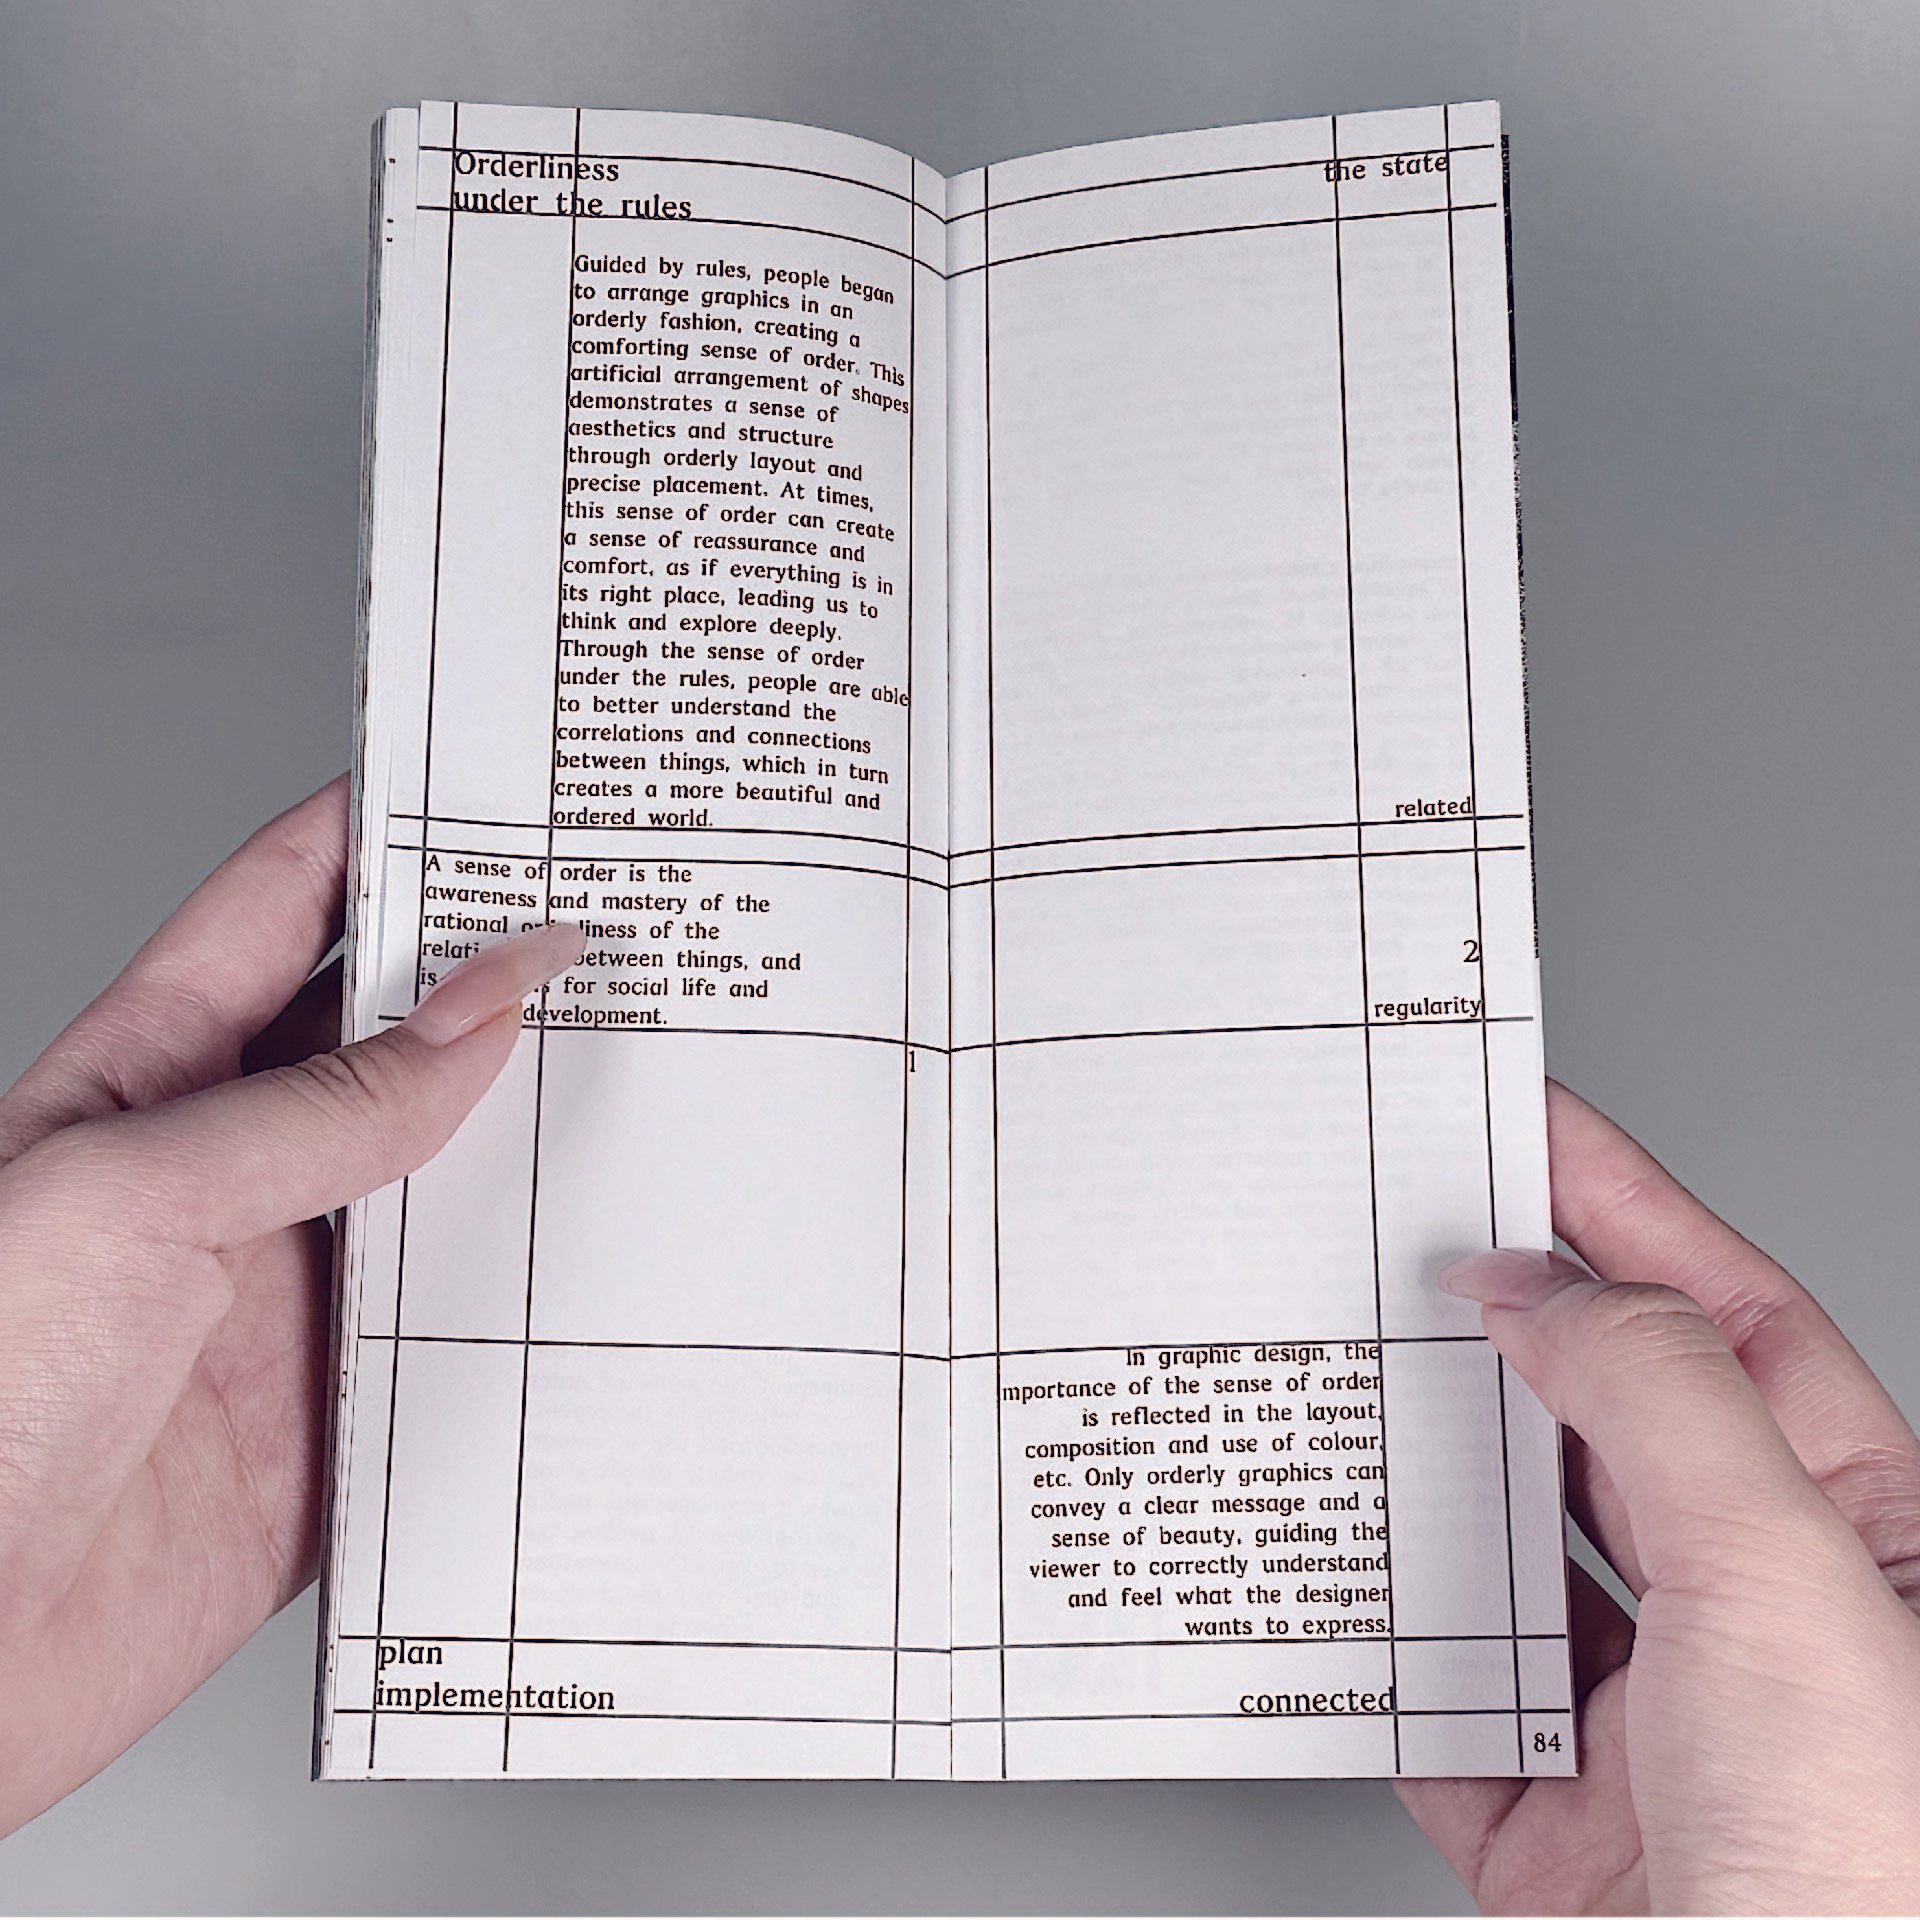 Orderliness
under the rules
Guided by rules, people began
to arrange graphics in an
orderly fashion, creating a
comforting sense of order. This
artificial arrangement of shapes
demonstrates a sense of
aesthetics and structure
through orderly layout and
precise placement. At times,
this sense of order can create
a sense of reassurance and
comfort, as if everything is in
its right place, leading us to
think and explore deeply.
Through the sense of order
under the rules, people are able
to better understand the
correlations and connections
between things, which in turn
creates a more beautiful and
ordered world.
A sense of order is the
awareness and mastery of the
rational of the
between things, and
is for social life and
development.
1
plan
implementation
the state
related
2
regularity
In graphic design, the
mportance of the sense of order
is reflected in the layout,
composition and use of colour,
etc. Only orderly graphics can
convey a clear message and a
sense of beauty, guiding the
viewer to correctly understand
and feel what the designer
wants to express.
connected
84